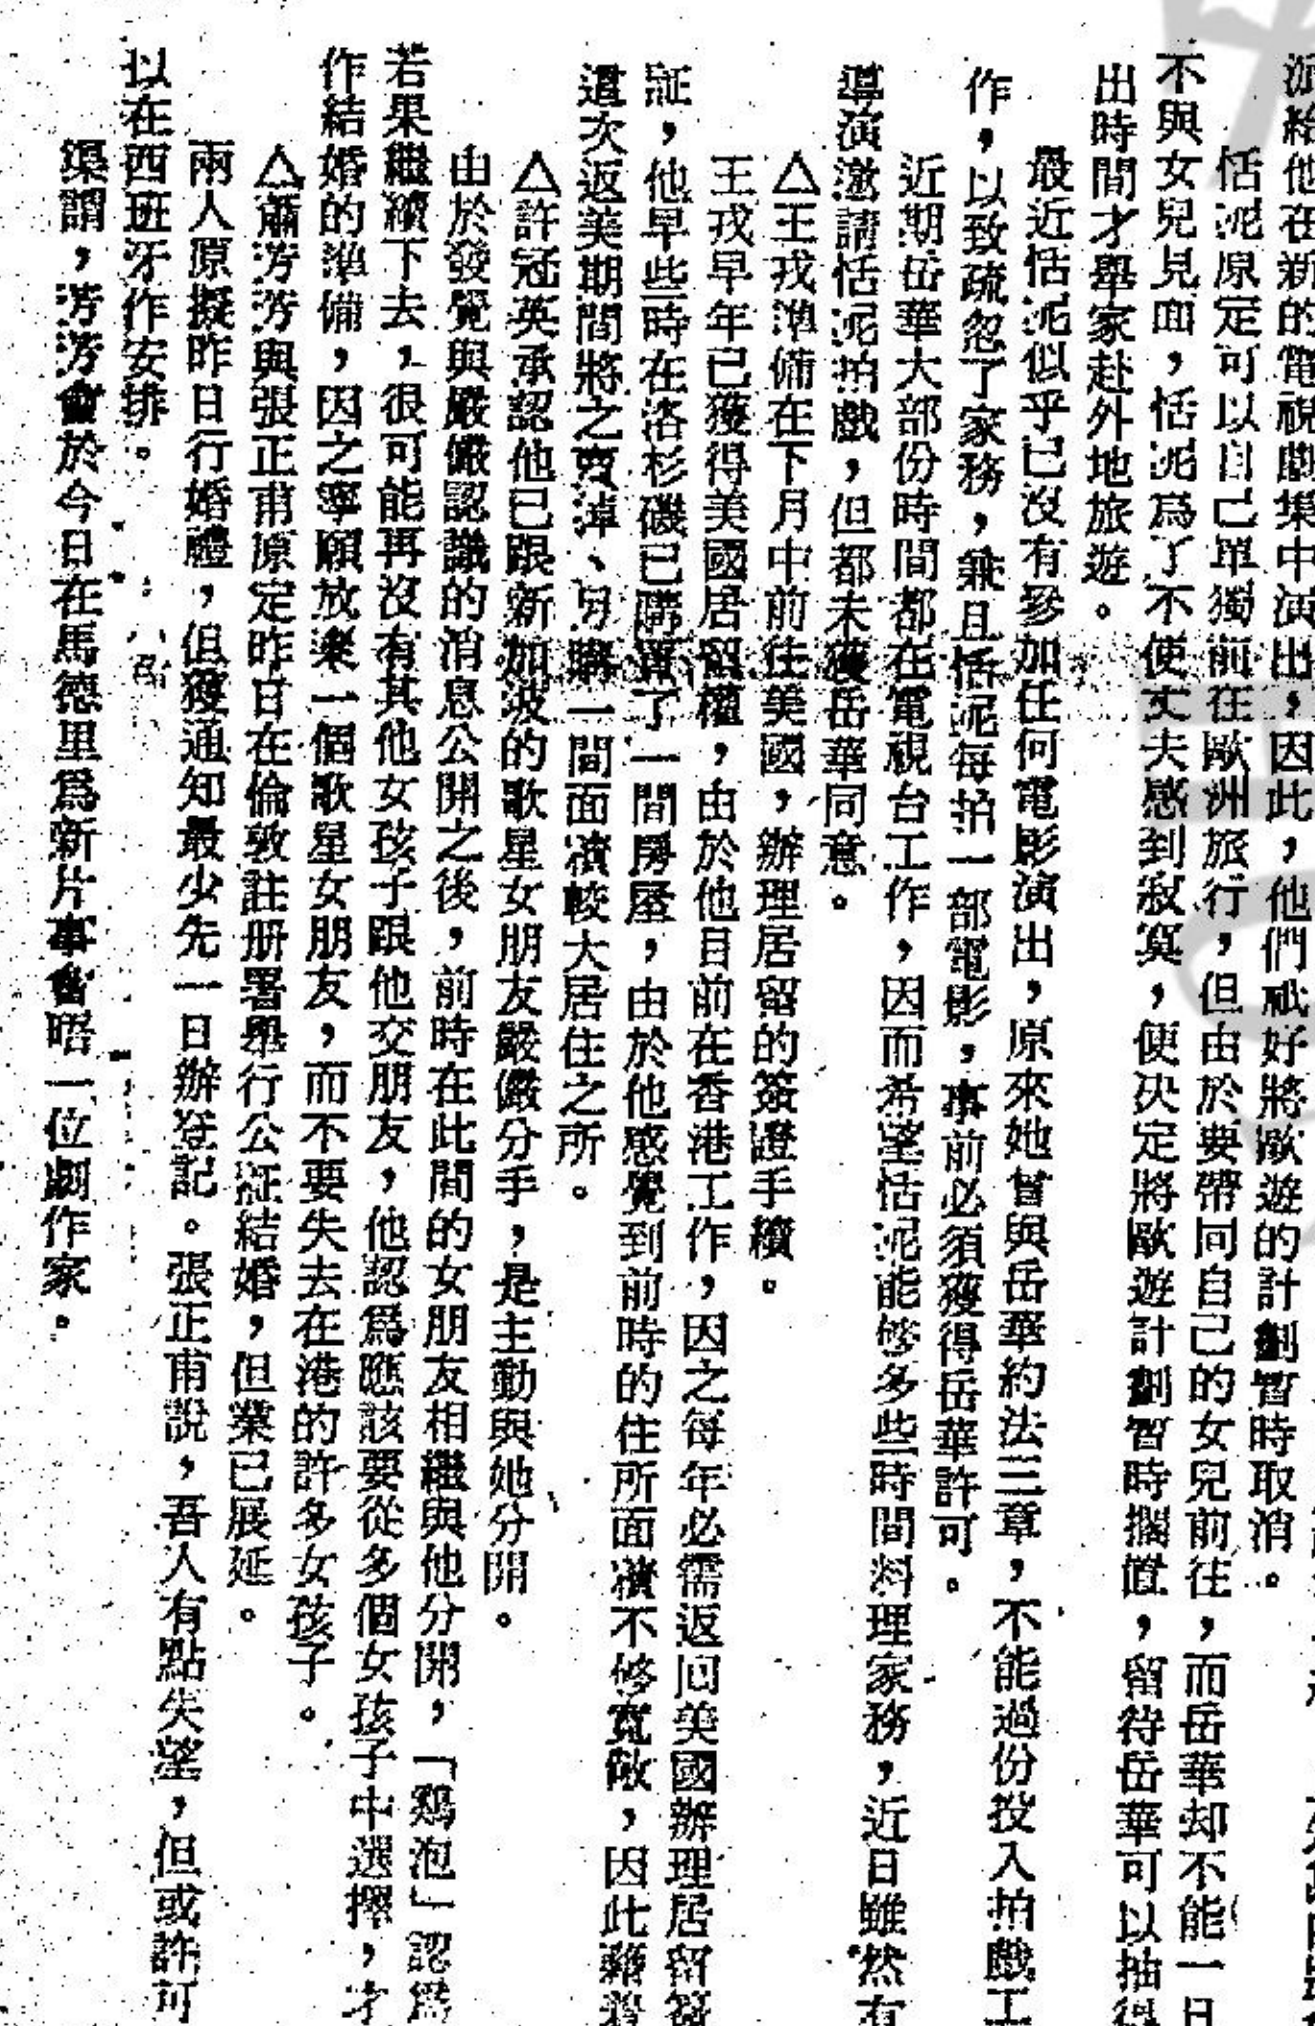 派給他在新的電視劇集中演出，因此，他們祇好將歐遊的計劃暫時取消。
恬泥原定可以自己單獨前往歐洲旅行，但由於要帶同自己的女兒前往，而岳華却不能一日
不與女兒見面，恬泥為了不使丈夫感到寂寞，便決定將歐遊計劃暫時擱置，留待岳華可以抽得
出時間才舉家赴外地旅遊。
最近恬泥似乎已沒有參加任何電影演出，原來她曾與岳華約法三章，不能過份投入拍戲工
作，以致疏忽了家務，兼且恬泥每拍一部電影，事前必須獲得岳華許可。
近期岳華大部份時間都在電視台工作，因而希望恬泥能够多些時間料理家務，近日雖然有
導演邀請恬泥拍戲，但都未獲岳華同意。
△王戎準備在下月中前往美國，辦理居留的簽證手續。
王戎早年已獲得美國居留權，由於他目前在香港工作，因之每年必需返回美國辦理居留簽
証，他早些時在洛杉磯已購置了一間房屋，由於他感覺到前時的住所面積不够寬敞，因此藉着
這次返美期間將之賣掉、另購一間面積較大居住之所。
△許冠英承認他已跟新加波的歌星女朋友嚴儀分手，是主動與她分開。
由於發覺與嚴儀認識的消息公開之後，前時在此間的女朋友相繼與他分開，「鷄泡」認爲
若果繼續下去，很可能再沒有其他女孩子跟他交朋友，他認爲應該要從多個女孩子中選擇，才
作結婚的準備，因之寧願放棄一個歌星女朋友，而不要失去在港的許多女孩子。
△蕭芳芳與張正甫原定昨日在倫敦註册署舉行公証結婚，但業已展延。
兩人原擬昨日行婚禮，但獲通知最少先一日辦登記。張正甫說，吾人有點失望，但或許可
以在西班牙作安排。
渠謂，芳芳會於今日在馬德里爲新片事會晤一位劇作家。